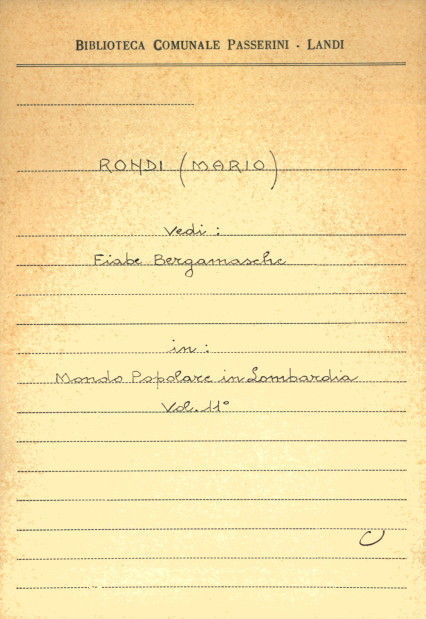 BIBLIOTECA COMUNALE PASSERINI - LANDI
RONDI (MARIO)
Vedi :
Fiabe Bergamasche
in :
Mondo Popolare in Lombardia
Vol. 11°